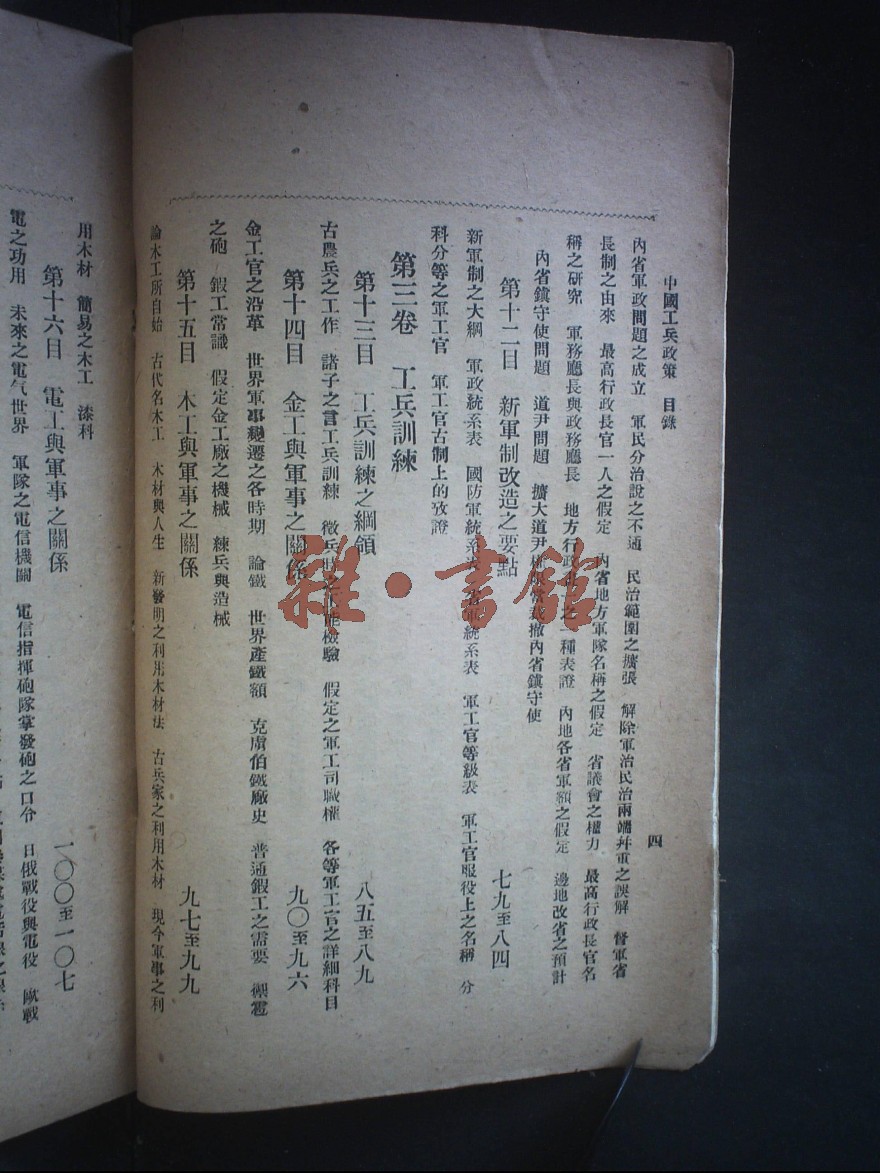 中國工兵政策 目錄
四
內省軍政問題之成立 軍民分治說之不通 民治範圍之擴張 解除軍治民治兩端幷重之誤解 督軍省
長制之由來 最高行政長官一人之假定 內省地方軍隊名稱之假定 省議會之權力 最高行政長官名
稱之研究 軍務廳長與政務廳長 地方行政 之一種表證 內地各省軍額之假定 邊地改省之預計
內省鎭守使問題 道尹問題 擴大道尹權限當裁撤內省鎭守使
第十二目 新軍制改造之要點 七九至八四
新軍制之大綱 軍政統系表 國防軍統系表 省軍統系表 軍工官等級表 軍工官服役上之名稱 分
科分等之軍工官 軍工官古制上的攷證
第三卷 工兵訓練
第十三目 工兵訓練之綱領 八五至八九
古農兵之工作 諸子之言工兵訓練 徵兵 之 能檢驗 假定之軍工司職權 各等軍工官之詳細科目
第十四目 金工與軍事之關係 九〇至九六
金工官之沿革 世界軍事變遷之各時期 論鐵 世界產鐵額 克虜伯鐵廠史 普通鍛工之需要 禦雹
之砲 鍛工常識 假定金工廠之機械 練兵與造械
第十五目 木工與軍事之關係 九七至九九
論木工所自始 古代名木工 木材與人生 新發明之利用木材法 古兵家之利用木材 現今軍事之利
用木材 簡易之木工 漆科
第十六目 電工與軍事之關係 一〇〇至一〇七
電之功用 未來之電气世界 軍隊之電信機關 電信指揮砲隊掌發砲之口令 日俄戰役與電役 歐戰
雜·書館